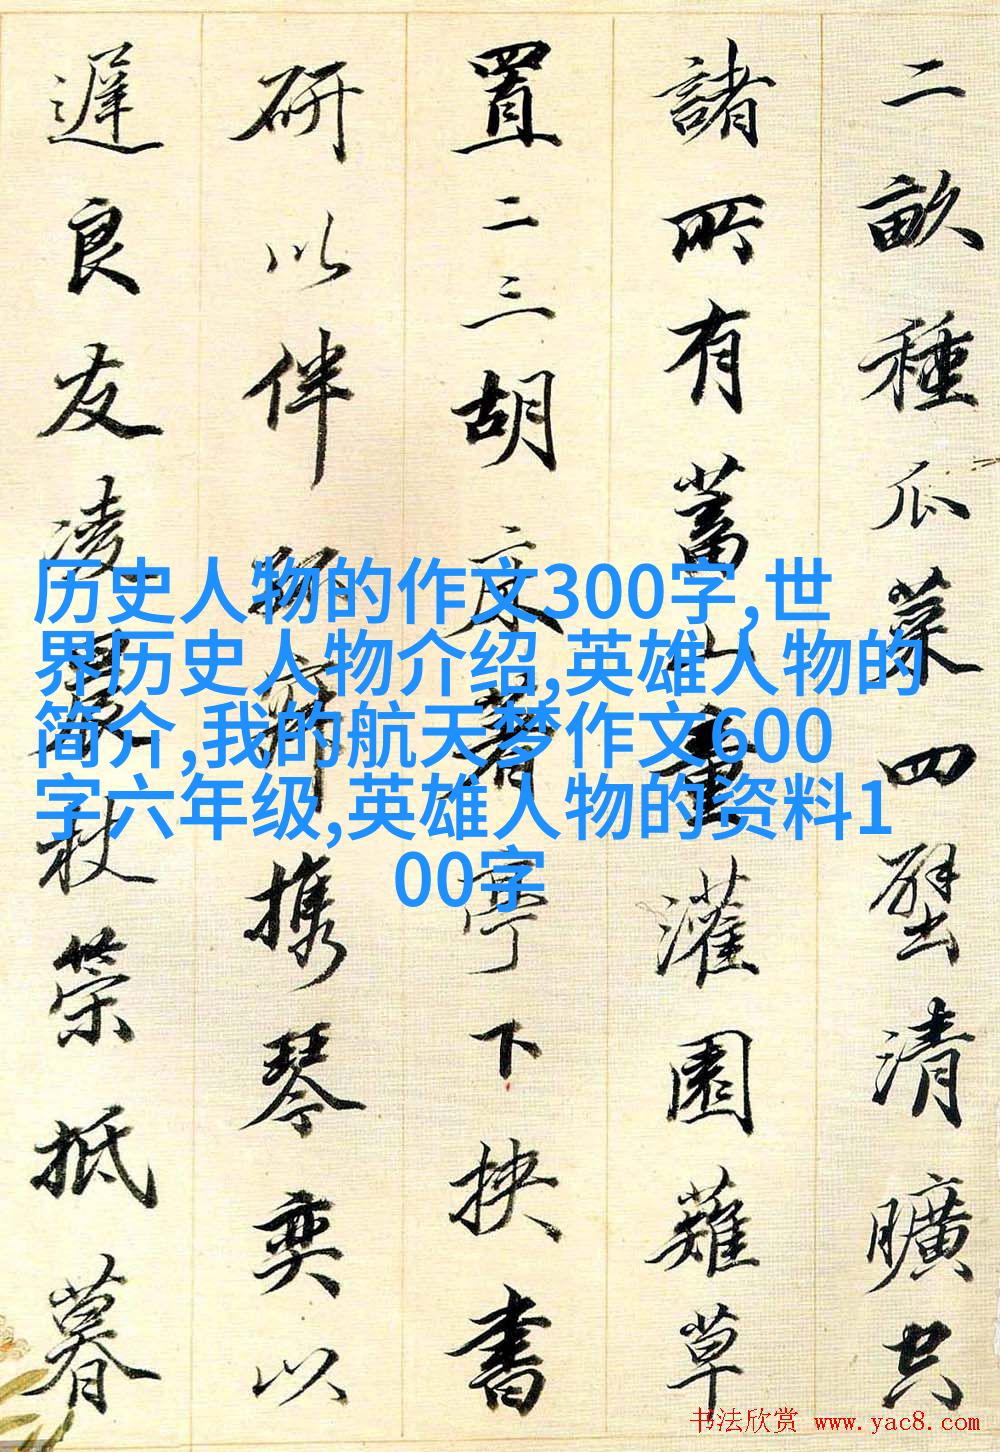 二畝種瓜菜四壁清曠空
諸所有蓄山童灌園薙草
置二三胡床著亭下挟書
研以伴孤寂携琴奕以
遲良友凌晨杖策抵暮
历史人物的作文300字,世
界历史人物介绍,英雄人物的
简介,我的航天梦作文600
字六年级,英雄人物的资料1
00字
书法欣赏 www.yac8.com